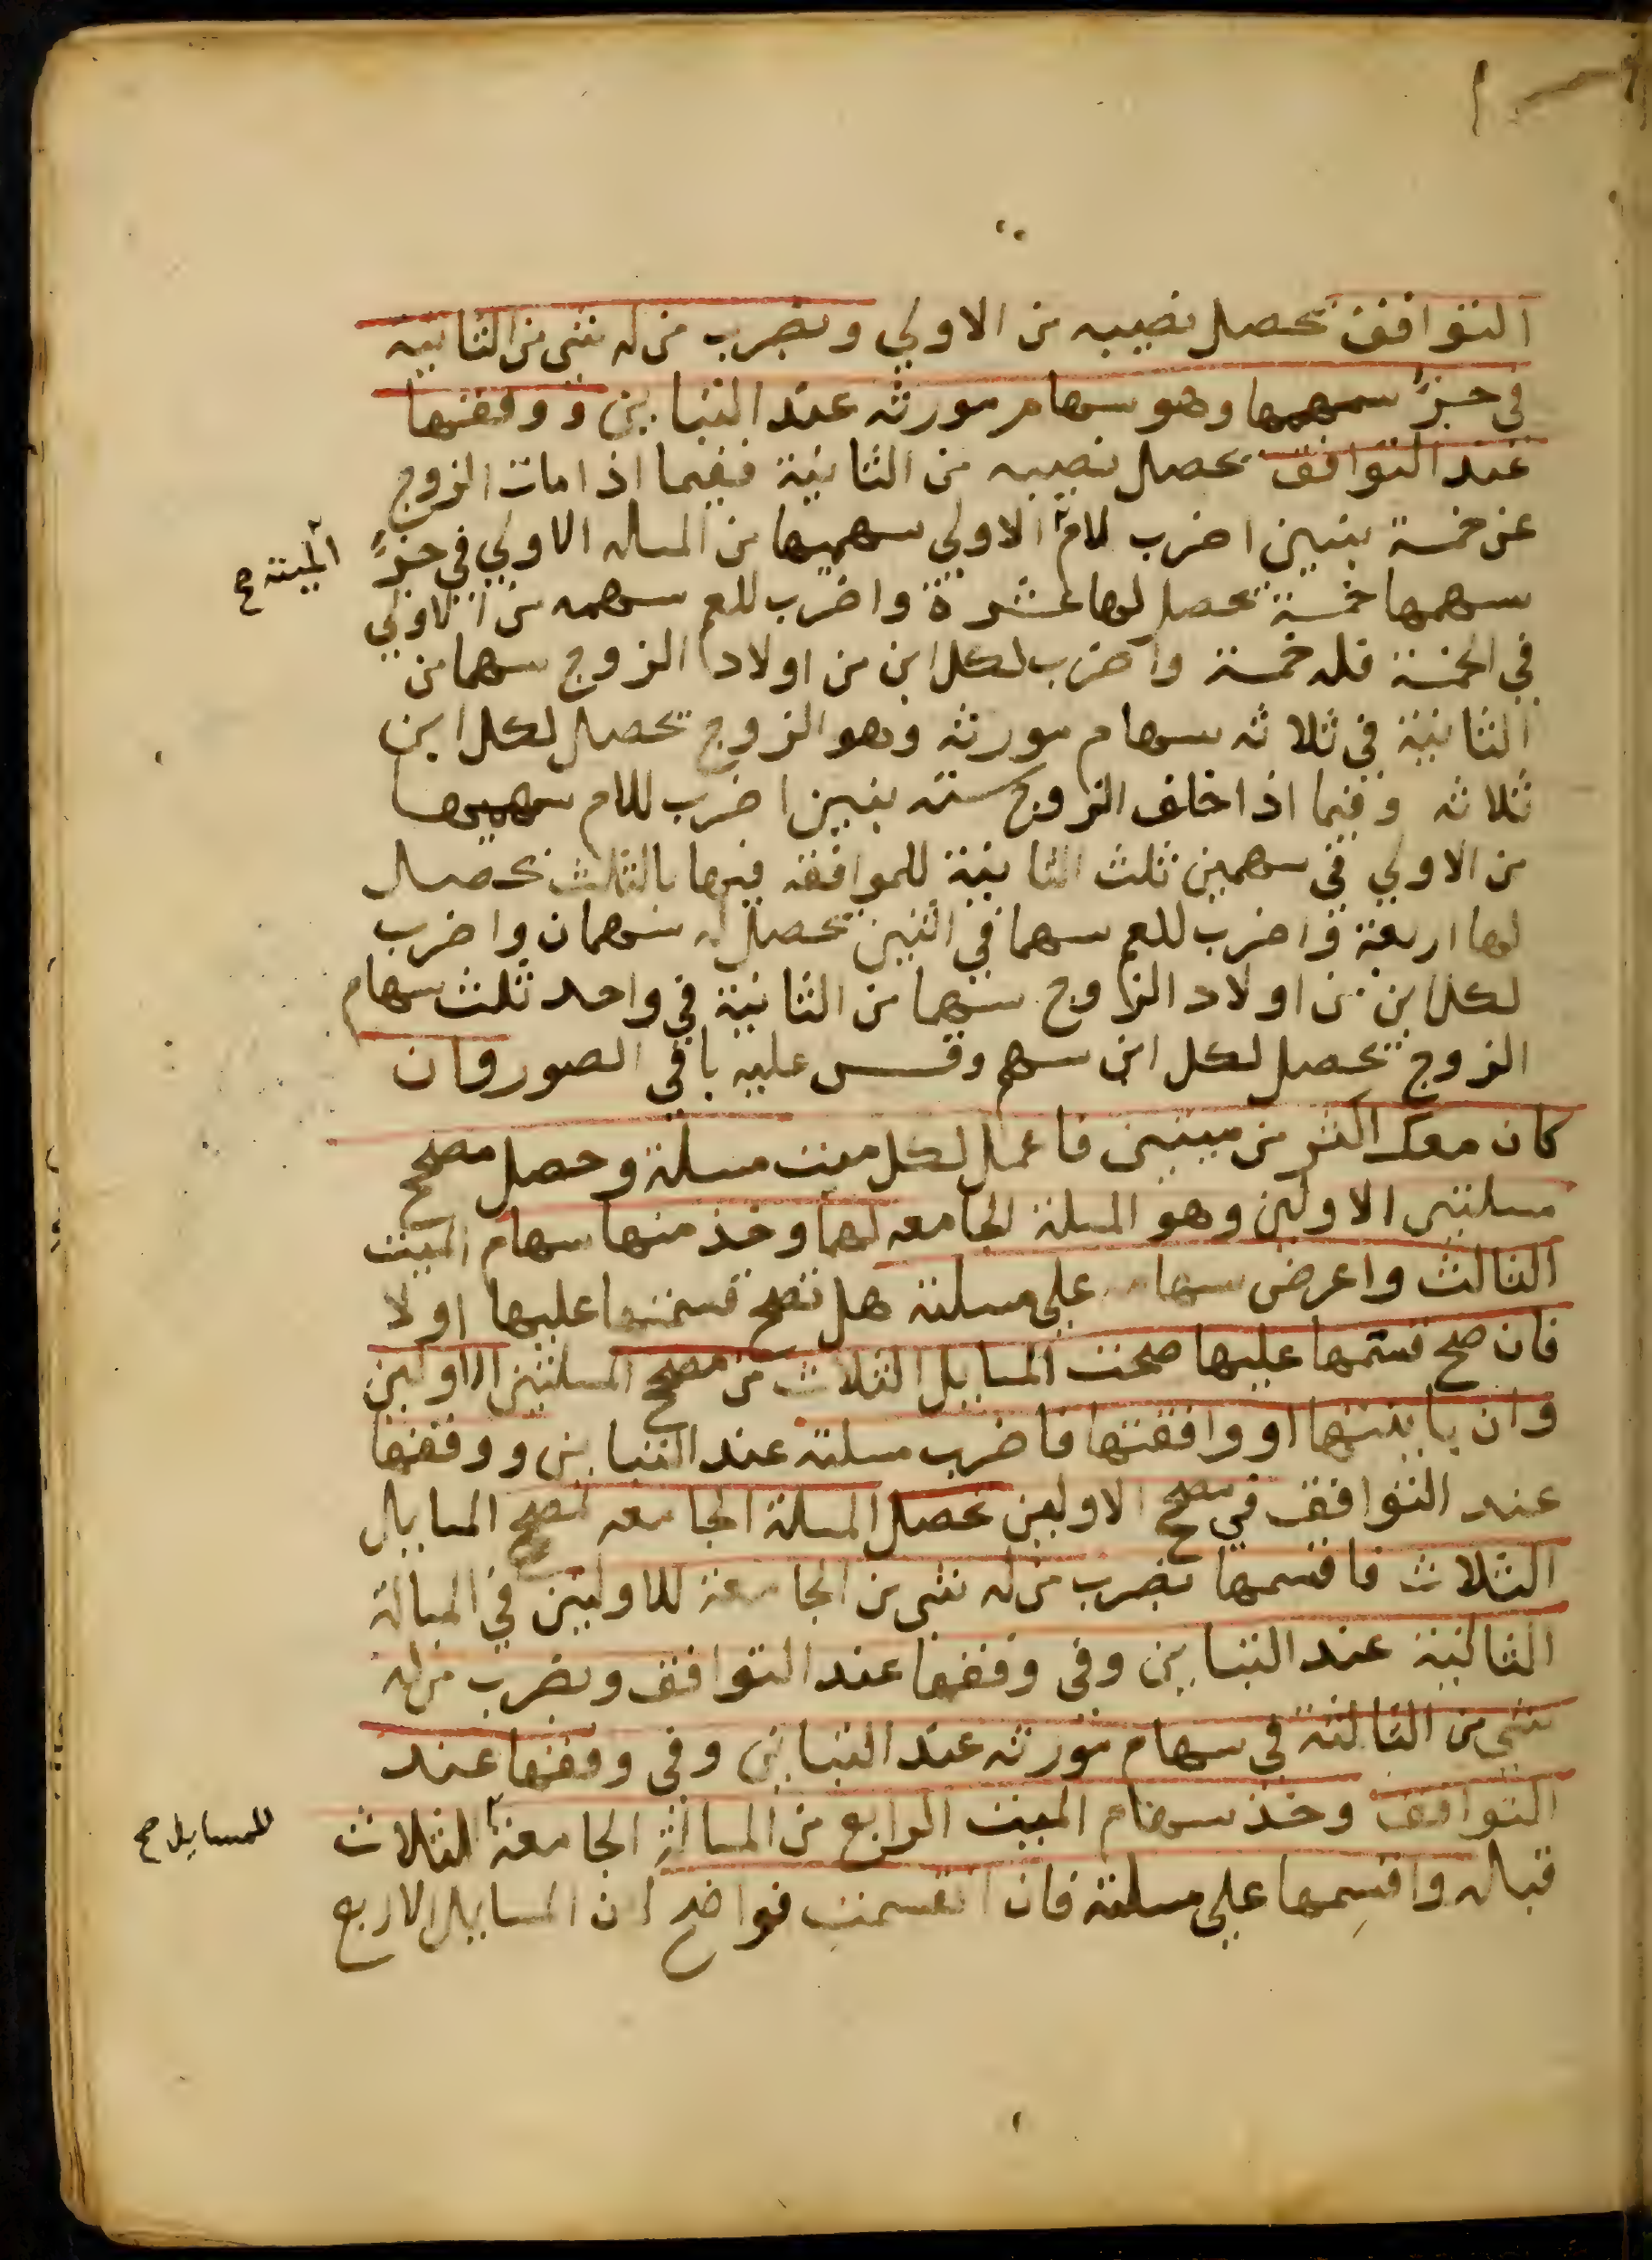 التوافق تحصل نصيبه من الاولي وبضرب من له شي من الثانيه
في جزء سهمها وهو سهام مورثه عند التباين ووفقها
عند التوافق يحصل نصيبه من الثانية ففيما اذا مات الزوج
عن خمسة بنين اضرب للام الاولي سهميها من المساله الاولي في جزء
الميتة صح
سهمها خمسة يحصل لها عشرة واضرب للعم سهمه من الاولي
في الخمسة فله خمسة واضرب لكل ابن من اولاد الزوج سهما من
الثانية في ثلاثه سهام مورثه وهو الزوج يحصل لكل ابن
ثلاثه وفيما اذا خلف الزوج ستة بنين اضرب للام سهميها
من الاولي في سهمين ثلث الثانية للموافقه فيها بالثلث يحصل
لها اربعة واضرب للعم سهما في اثنين يحصل له سهمان واضرب
لكل ابن من اولاد الزوج سهما من الثانية في واحد ثلث سهام
الزوج يحصل لكل ابن سهم وقس عليه باقي الصور وان
كان معك اكثر من ميتين فاعمل لكل ميت مسلة وحصل مصحح
مسلتين الاولين وهو المسلة الجامعه لهما وخذ منها سهام الميت
الثالث واعرض سهامه علي مسلته هل تصح قسمتها عليها اولا
فان صح قسمتها عليها صحت المسايل الثلاث من مصحح المسلتين الاولين
وان باينتها او وافقتها فاضرب مسلته عند التباين ووفقها
عند التوافق في مصحح الاولين تحصل المسلة الجامعه لمصحح المسايل
الثلاث فاقسمها بضرب من له شي من الجامعة للاوليين في المسالة
الثالثة عند التباين وفي وفقها عند التوافق وبضرب من له
شي من الثالثة في سهام مورثه عند التباين وفي وفقها عند
التوافق وخذ سهام الميت الرابع من المسالة الجامعة الثلاث
للمسايل صح
قباله واقسمها علي مسلته فان انقسمت فواضح ان المسايل الاربع